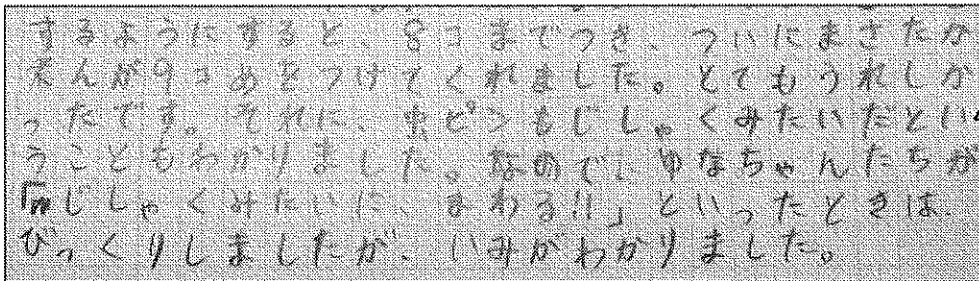 するようにすると、8コまでつき、ついにまさたか
くんが9コめをつけてくれました。とてもうれしか
ったです。それに、虫ピンもじしゃくみたいだとい
うこともわかりました。なので、ゆなちゃんたちが
「じしゃくみたいに、まわる!!」といったときは、
びっくりしましたが、いみがわかりました。